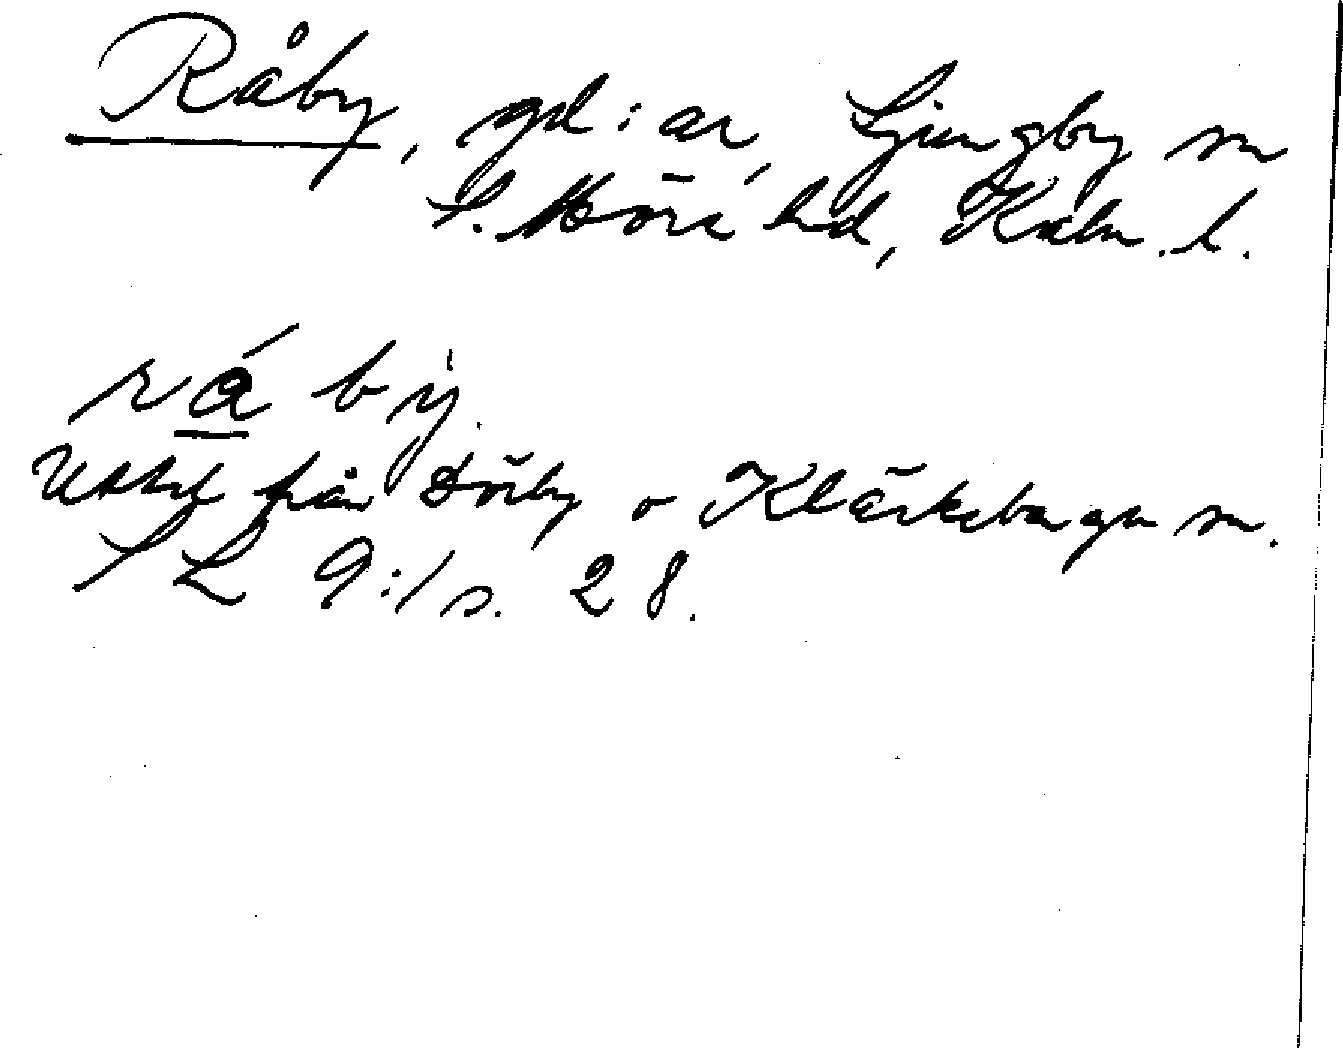 Råby, gd:ar, Ljungby sn
S. Möre hd, Kalm. l.
rá bỳ.
Uttal från Dörby o Kläckeberga sn.
SL 9:1 s. 28.